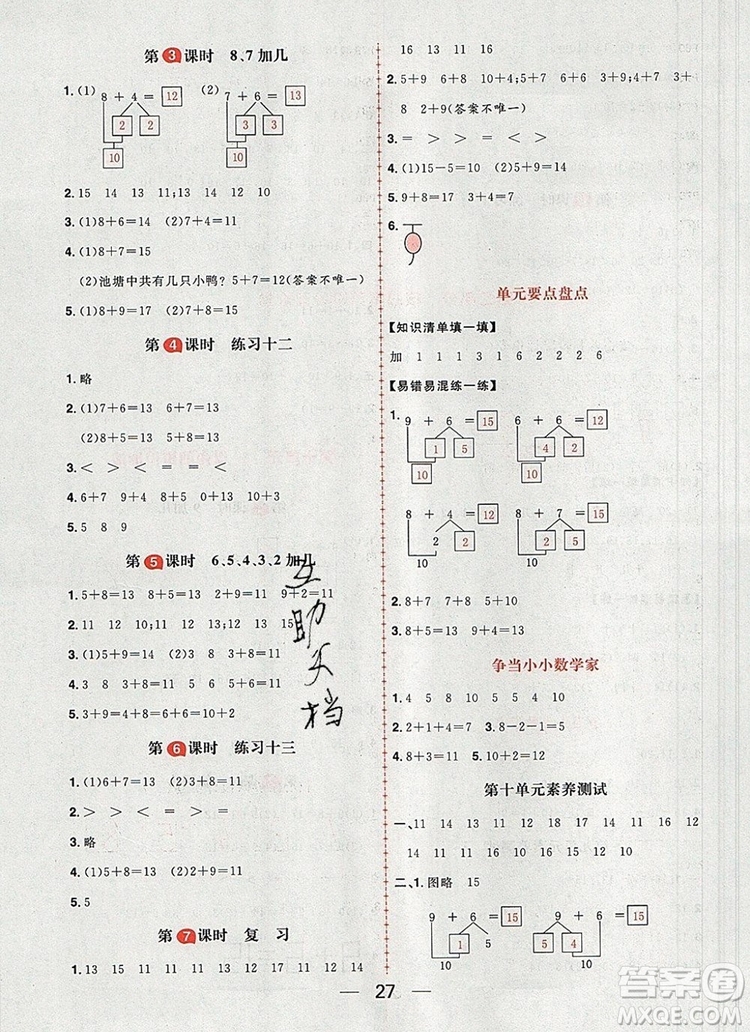 第3课时 8、7加几
1.(1) 8+4=12 (2) 7+6=13
2 2 3 3
10 10
2.15 14 13 11;13 17 11 10
3.(1)8+6=14 (2)7+4=11
4.(1)8+7=15
(2)池塘中共有几只小鸭? 5+7=12(答案不唯一)
第4课时 练习十二
1.略
2.(1)7+6=13 6+7=13
(2)8+5=13 5+8=13
3.< > < = > <
4.10+6 7+9 9+4 8+5 10+3
5.5 8 9
第5课时 6、5、4、3、2加几
1.5+6=11 8+5=13 2+9=11 9+2=11
2.11 13 12;13 11 12;13 12 15
3.(1)6+5=11 (2)9+4=13
4.3 8 3+8=11 6 5 6+5=11
5.2+8=3+7=4+6=5+5=6+4
第6课时 练习十三
1.(1)6+5=11 (2)3+8=11
2.> > > < = > =
3.略
4.(1)5+6=11 (2)9+2=11
5.5
第7课时 复习
1.13 15 15 17 11 11 11 12 12 14
16 16 13 11
2.5+9 4+10;5+7 6+6 3+9;4+7 3+
8 2+9(答案不唯一)
3.= = > < > >
4.(1)15-5=10 (2)5+9=14
5.9+8=17 3+4=7 9+7=16
6.
单元要点盘点
【知识清单填一填】
加 1 1 1 3 1 6 2 2 2 6
【易错易混练一练】
1. 9+6=15 9+6=15
1 5 5 4
10 10
8+4=12 8+4=12
2 2 2 2
10 10
2.8+7 7+8 5+10
3.8+8=16 9+4=13
争当小小数学家
1.4 5 8 10 5 5 4 10
2.2+1+1=4 3.8-2-1=5
4.8+3=11 5.10+2=12
第十单元素养测试
一、11 14 13 17 12 14 11 16 12
14 11 10 15 11 16 12 10
二、1.图略 15
9+6=15 9+6=15
1 5 5 4
10 10
27
互助文档
答案圈
MXQE.COM